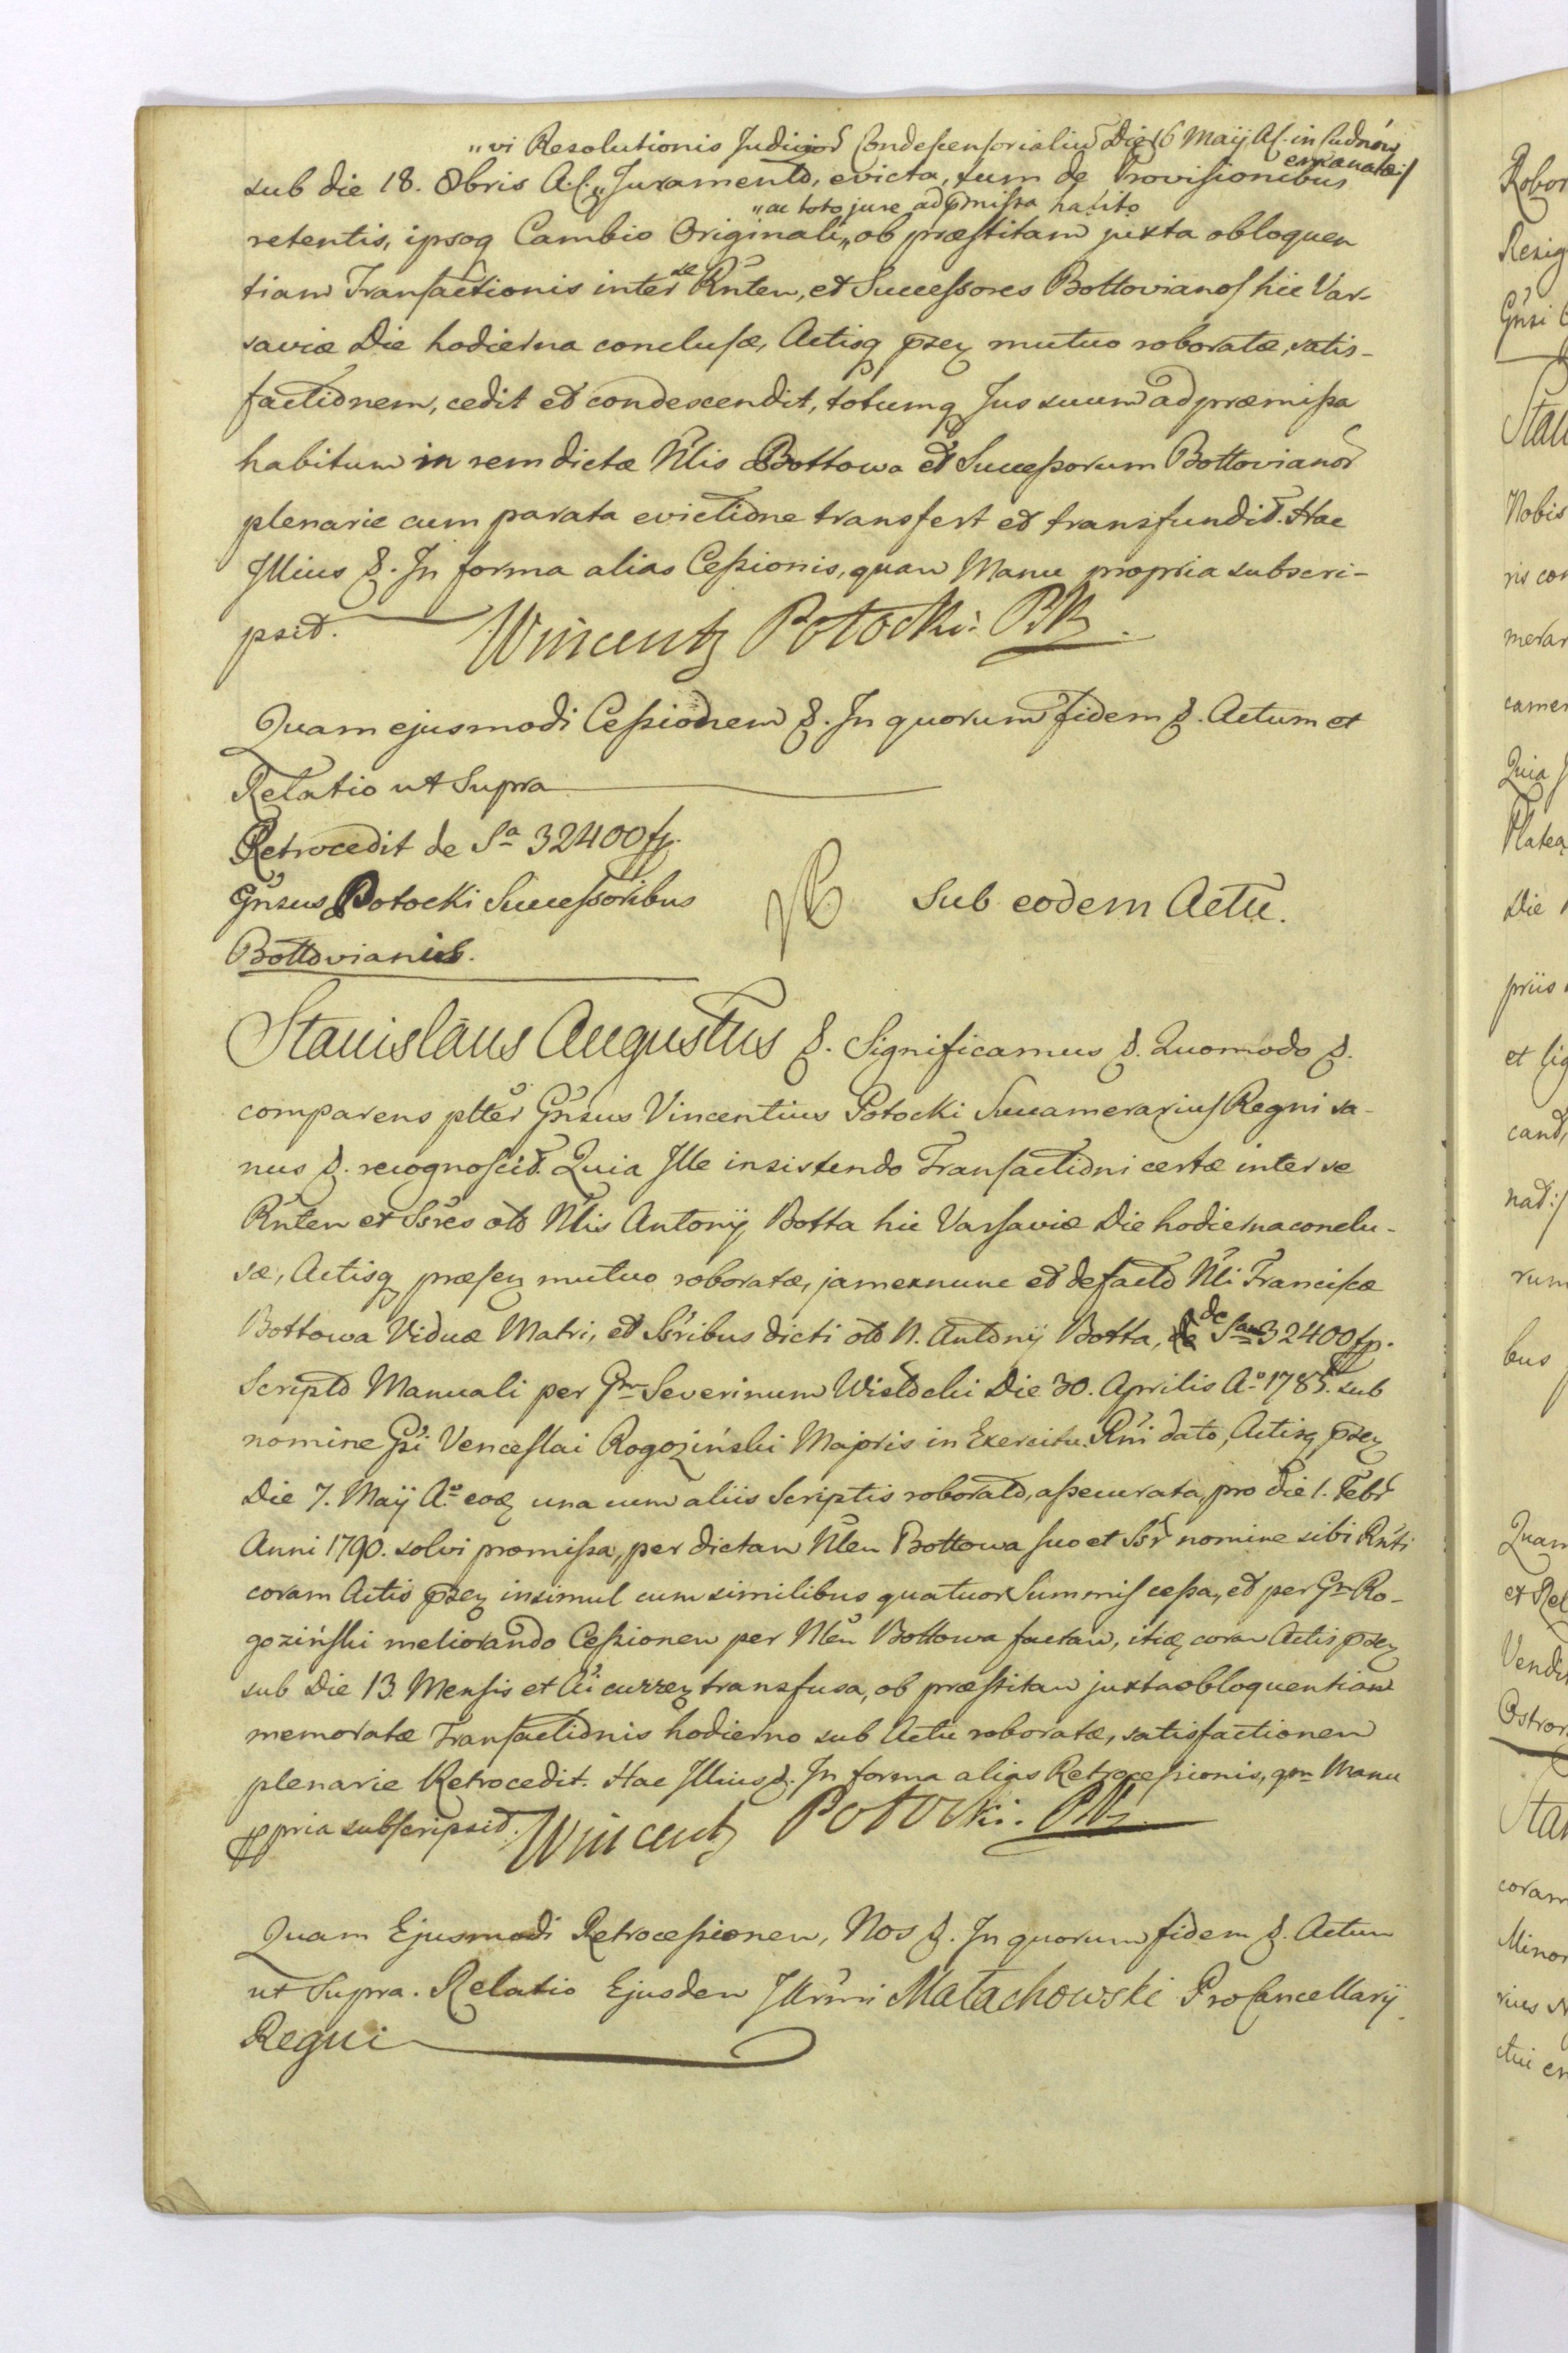 „vi Resolutionis Judicior Condescensorialium Die 16 Maÿ A.C. in Ludnow
emanatæ:/
sub die 18. 8bris A.C.„ Juramento, evicta, tum de Provisionibus
„ac toto jure ad pmissa habito
retentis, ipsoq Cambio Originali„ ob præstitam juxta obloquen
tiam Transactionis inter se Rnten, et Successores Bottovianos hic Var-
saviæ Die hodierna conclusæ, Actisq psen mutuo roboratæ, satis-
factionem, cedit et condescendit, totumq Jus suum ad præmissa
habitum in rem dictæ Nlis Bottowa et Successorum Bottovianor
plenarie cum parata evictione transfert et transfundit. Hac
Illius &. In forma alias Cessionis, quam Manu propria subscri-
psit. Wincenty Potocki. PK.
Quam ejusmodi Cessionem &. In quorum fidem &. Actum et
Relatio ut Supra
Retrocedit de Sa 32400 fp.
Gnsus Potocki Successoribus
Bottovianis.
Sub eodem Actu.
Stanislaus Augustus &. Significamus &. Quomodo &.
comparens plter Gnsus Vincentius Potocki Succamerarius Regni sa-
nus &. recognoscit. Quia Ille insistendo Transactioni certæ inter se
Rnten et Ssres olo Nlis Antonÿ Botta hic Varsaviæ Die hodierna conclu-
sæ, Actisq præsen mutuo roboratæ, jam ex nunc et de facto Nli Franciscæ
Bottowa Viduæ Matri, et Ssribus dicti olo N. Antonÿ Botta, de Sa 32400 fp.
Scripto Manuali per Gm Severinum Wislocki Die 30. Aprilis Ao 1785. sub
nomine Gsi Venceslai Rogoziński Majoris in Exercitu Rni dato, Actisq psen
Die 7. Maÿ Ao eoq una cum aliis Scriptis roborato, assecurata, pro die 1. Febr
Anni 1790. solvi promissa, per dictam Nlem Bottowa suo et Ssr nomine sibi Rnti
coram Actis psen insimul cum similibus quatuor Summis cessa, et per Gm Ro-
goziński meliorando Cessionem per Nlem Bottowa factam, itiq coram Actis psen
sub Die 13. Mensis et Ai curren transfusa, ob præstitam juxta obloquentiam
memoratæ Transactionis hodierno sub Actu roboratæ, satisfactionem
plenarie Retrocedit. Hac Illius &. In forma alias Retrocessionis, qm Manu
ppria subscripsit. Wincenty Potocki. PK.
Quam Ejusmodi Retrocessionem, Nos &. In quorum fidem &. Actum
ut Supra. Relatio Ejusdem Illrmi Małachowski Procancellarÿ
Regni
Robor
Resig
Gnsi
Stan
Nobis
ris con
merar
camer
Quia
Platea
Die
priis
et
cand,
nat:/
rum
bus
Quam
et Rel
Vendi
Ostror
Stan
coram
Minor